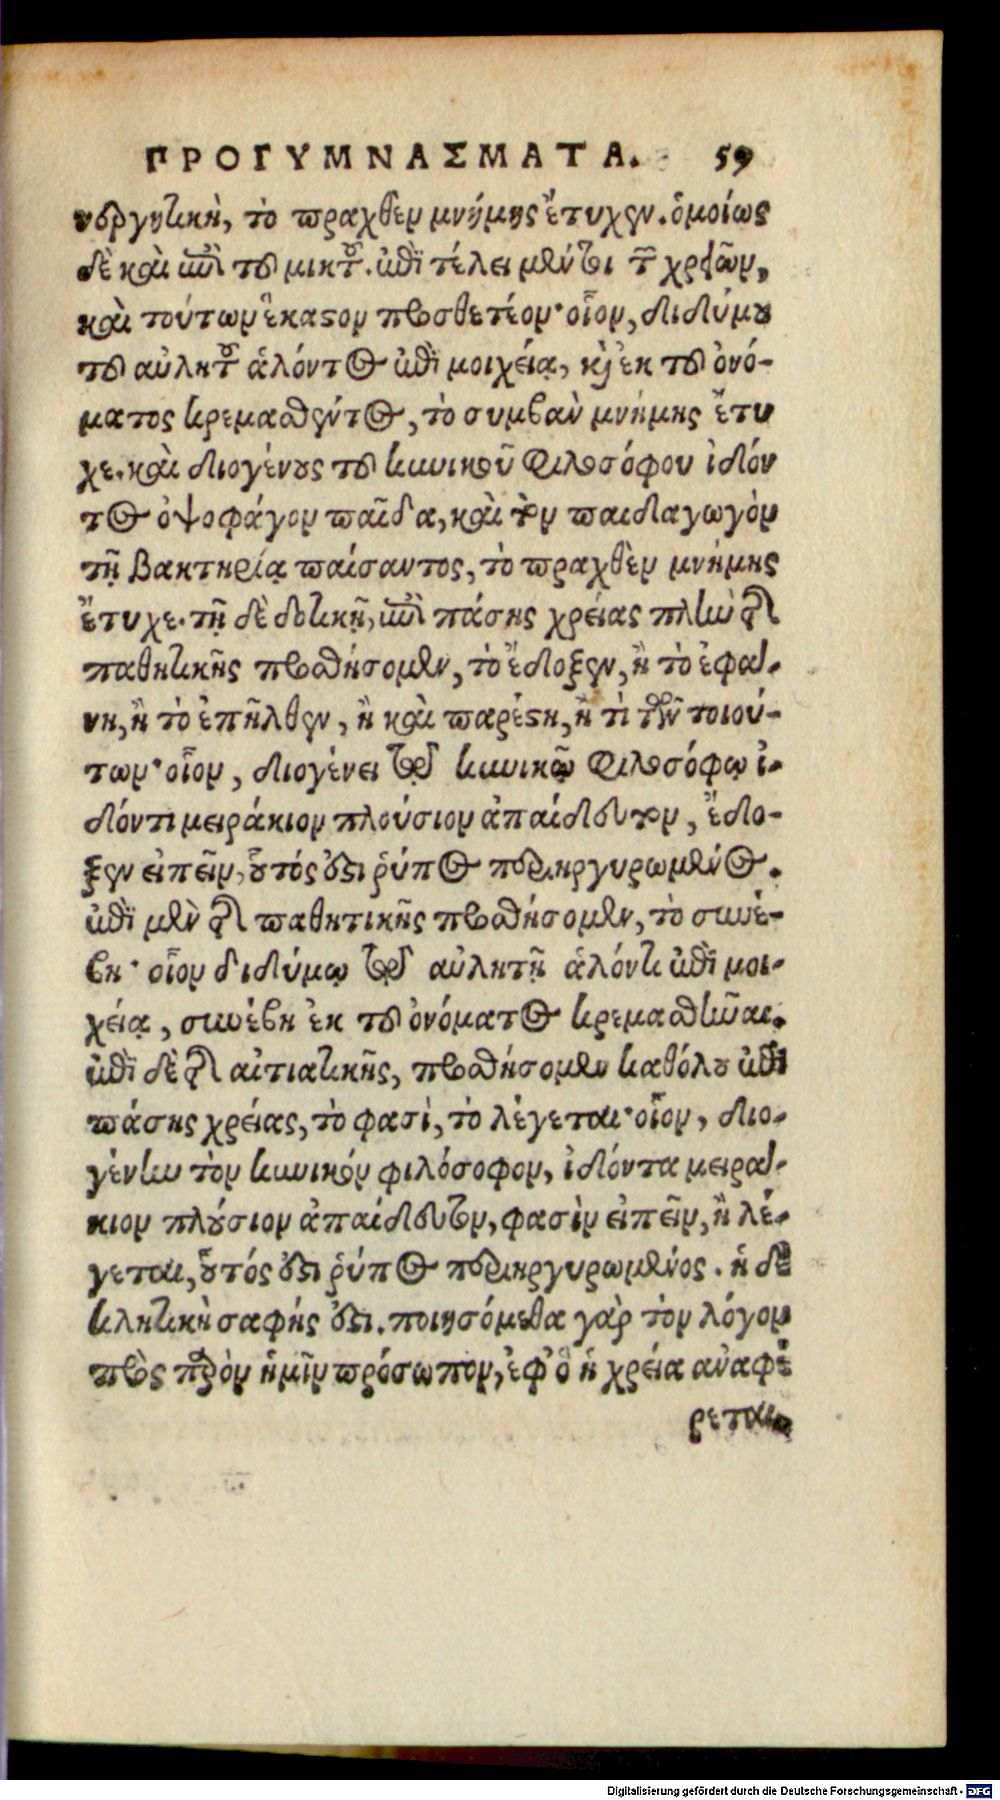 ΠΡΟΓΥΜΝΑΣΜΑΤΑ. 59
νεργητικὴ, τὸ πραχθὲν μνήμης ἔτυχεν. ὁμοίως
δὲ καὶ ἐπὶ τοῦ μικτοῦ. ἐπὶ τέλει μέντοι τῶν χρειῶν,
καὶ τούτων ἕκαστον προσθετέον· οἷον, Διδύμου
τοῦ αὐλητοῦ ἁλόντος ἐπὶ μοιχείᾳ, καὶ ἐκ τοῦ ὀνό-
ματος κρεμασθέντος, τὸ συμβὰν μνήμης ἔτυ
χε. καὶ Διογένους τοῦ κυνικοῦ φιλοσόφου ἰδόν
τος ὀψοφάγον παῖδα, καὶ τὸν παιδαγωγὸν
τῇ βακτηρίᾳ παίσαντος, τὸ πραχθὲν μνήμης
ἔτυχε. τῇ δὲ δοτικῇ, ἐπὶ πάσης χρείας πλὴν τῆς
παθητικῆς προσθήσομεν, τὸ ἔδοξεν, ἢ τὸ ἐφά-
νη, ἢ τὸ ἐπῆλθεν, ἢ καὶ παρέστη, ἤ τι τῶν τοιού-
των· οἷον, Διογένει τῷ κυνικῷ φιλοσόφῳ ἰ-
δόντι μειράκιον πλούσιον ἀπαίδευτον, ἔδο-
ξεν εἰπεῖν, οὗτός ἐστι ῥύπος περιηργυρωμένος.
ἐπὶ μὲν τῆς παθητικῆς προσθήσομεν, τὸ συνέ-
βη· οἷον Διδύμῳ τῷ αὐλητῇ ἁλόντι ἐπὶ μοι-
χείᾳ, συνέβη ἐκ τοῦ ὀνόματος κρεμασθῆναι.
ἐπὶ δὲ τῆς αἰτιατικῆς, προσθήσομεν καθόλου ἐπὶ
πάσης χρείας, τὸ φασὶ, τὸ λέγεται· οἷον, Διο-
γένην τὸν κυνικὸν φιλόσοφον, ἰδόντα μειρά-
κιον πλούσιον ἀπαίδευτον, φασὶν εἰπεῖν, ἢ λέ-
γεται, οὗτός ἐστι ῥύπος περιηργυρωμένος. ἡ δὲ
κλητικὴ σαφής ἐστι. ποιησόμεθα γὰρ τὸν λόγον
πρὸς παρὸν ἡμῖν πρόσωπον, ἐφ' ὃ ἡ χρεία ἀναφέ
ρεται.
Digitalisierung gefördert durch die Deutsche Forschungsgemeinschaft - DFG